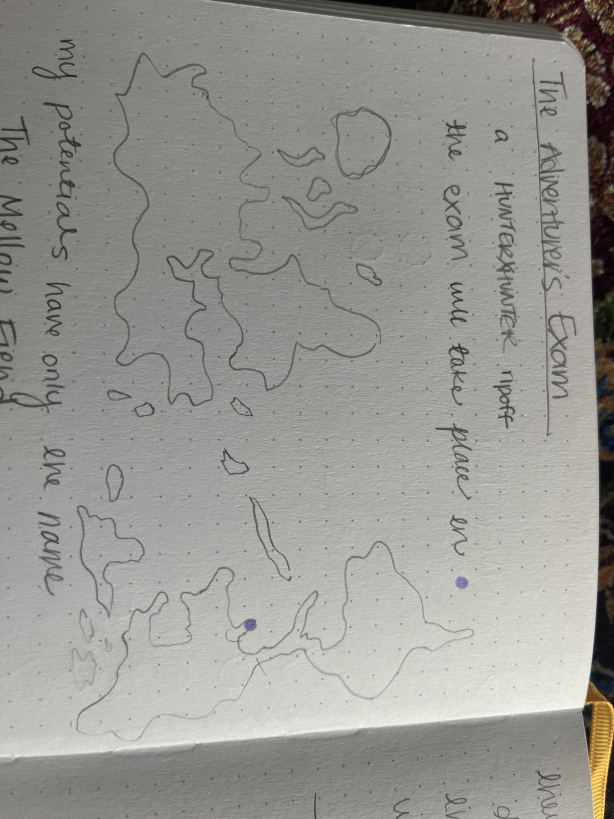 The Adventurer's Exam
a HUNTERXHUNTER ripoff
the exam will take place en
my potentials have only one name
The Mellow Fiend